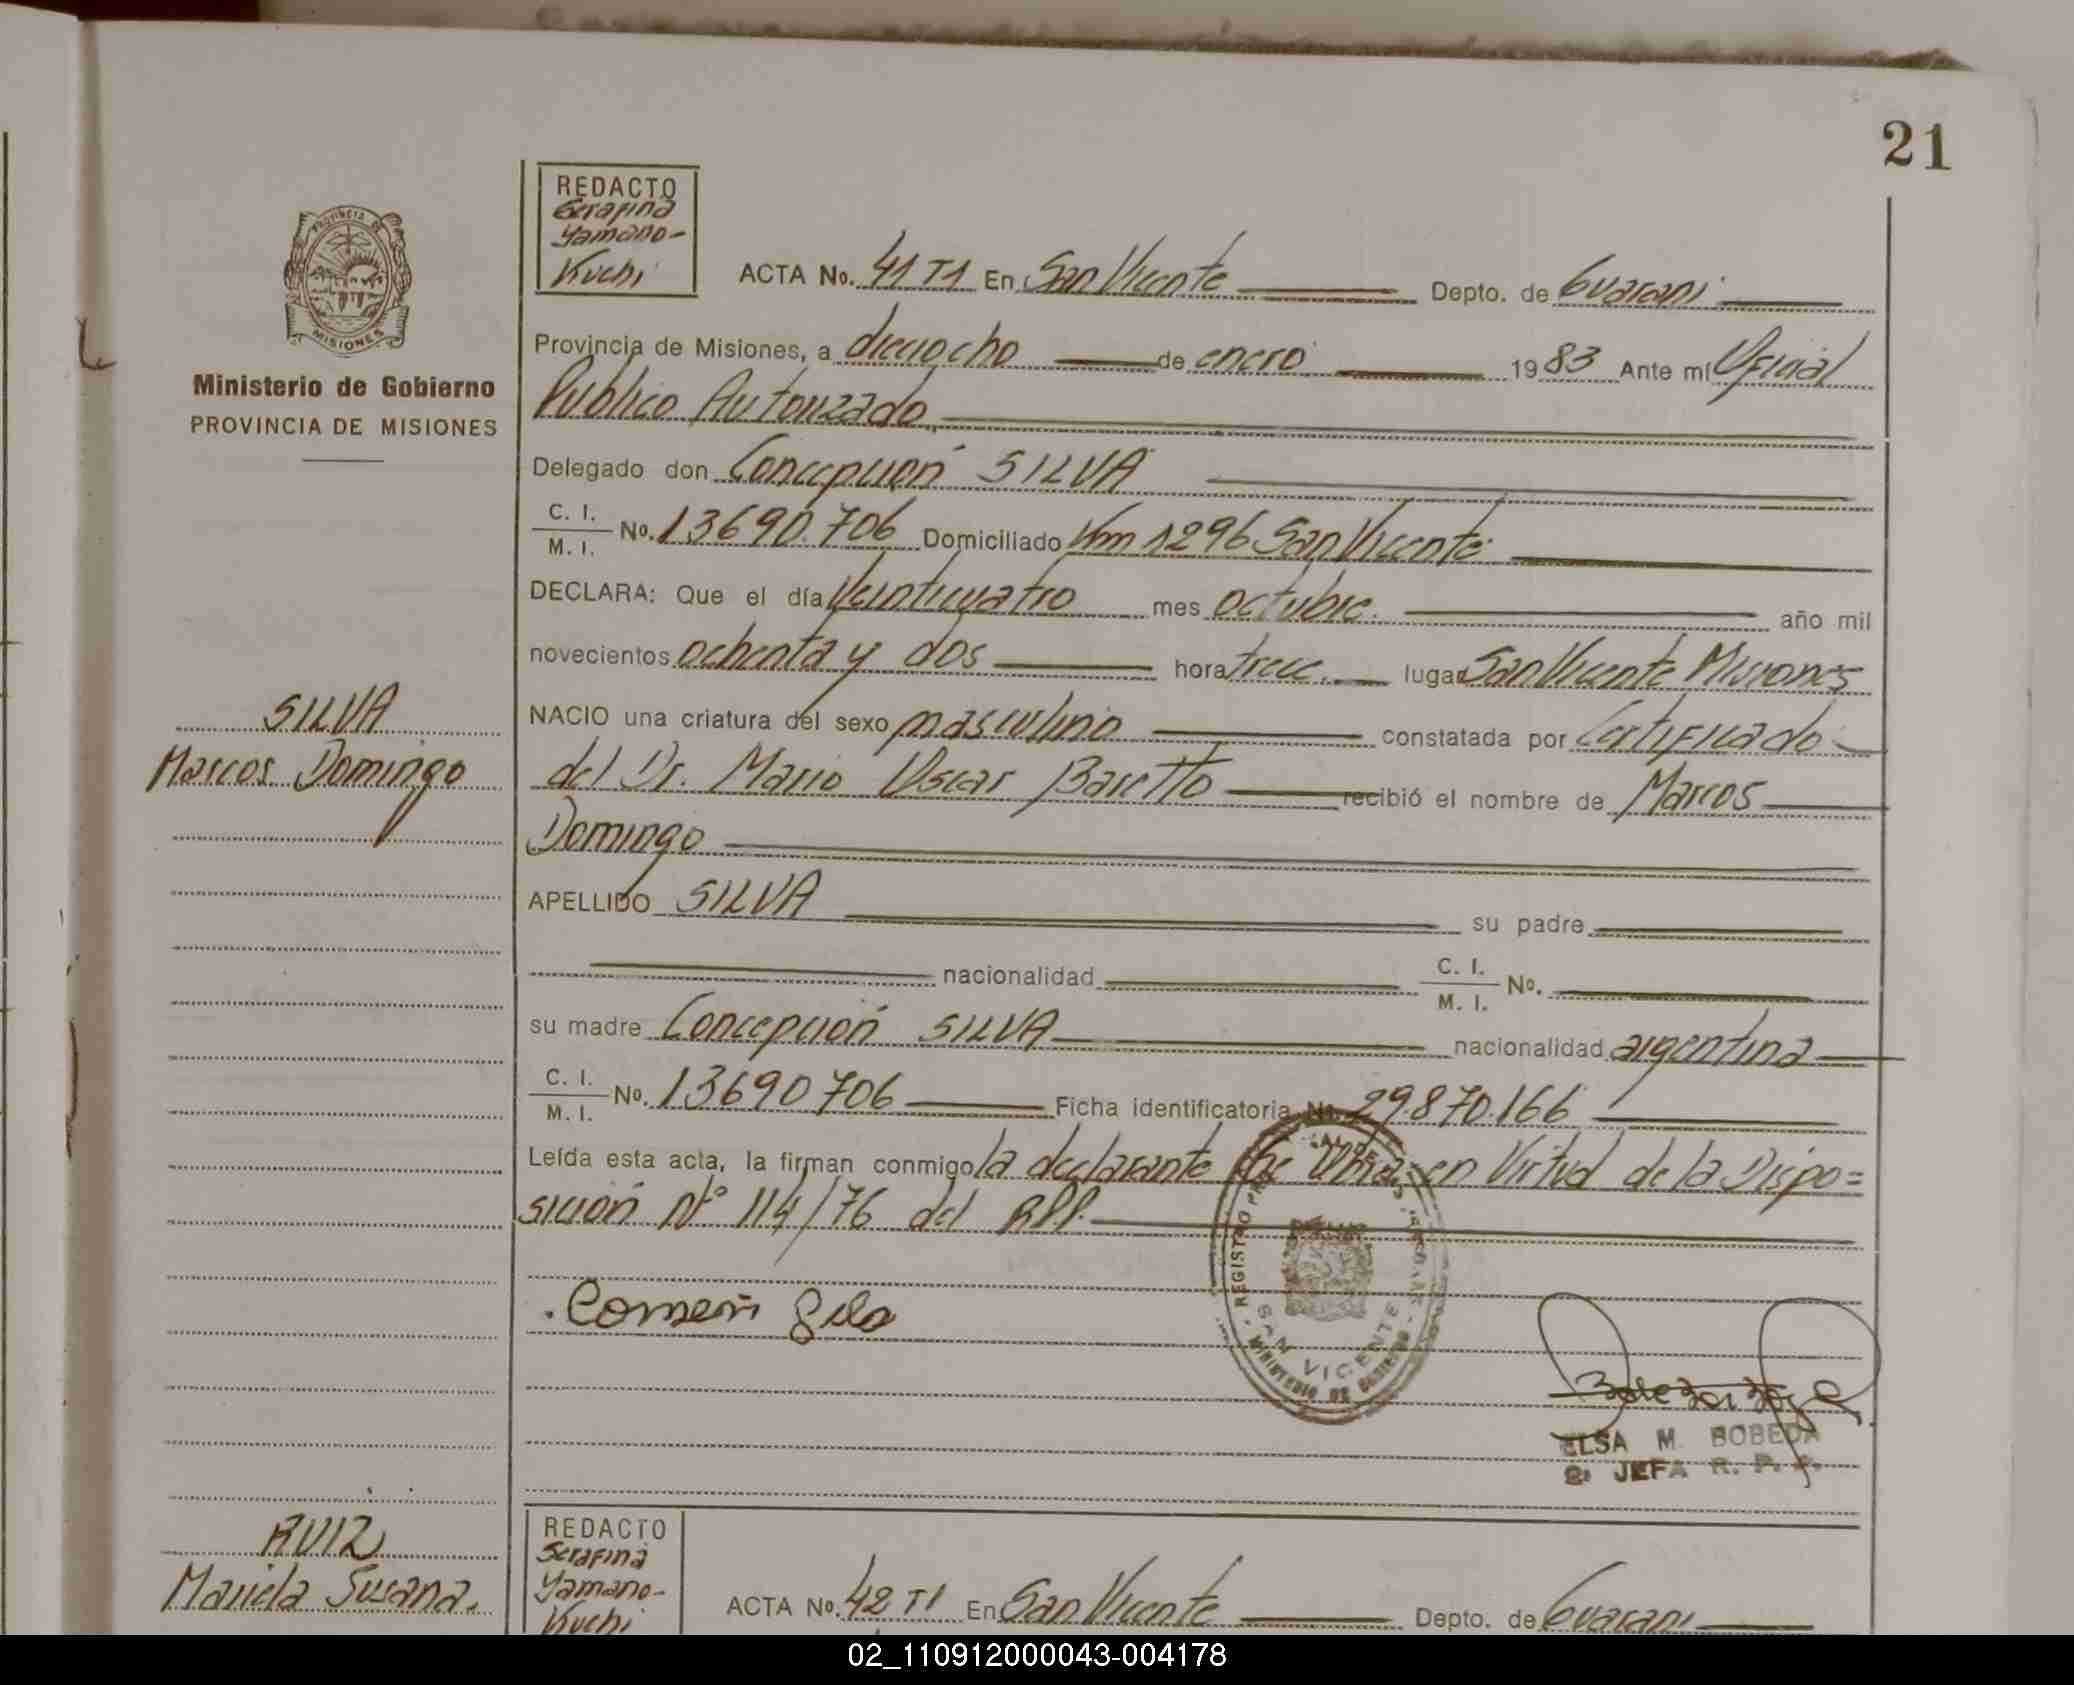 21
REDACTO
Serafina
Yamano-
Kuchi
ACTA No. 41 T1 En San Vicente Depto. de Guaraní
PROVINCIA DE
MISIONES
Ministerio de Gobierno
PROVINCIA DE MISIONES
Provincia de Misiones, a dieciocho de enero 1983 Ante mí Oficial
Publico Autorizado
Delegado don Concepción SILVA
C. I.
M. I. No. 13690.706 Domiciliado Km 1296 San Vicente
DECLARA: Que el día Veinticuatro mes octubre. año mil
novecientos ochenta y dos hora trece. lugar San Vicente Misiones
SILVA
Marcos Domingo
NACIO una criatura del sexo masculino constatada por Certificado
del Dr. Mario Oscar Baretto recibió el nombre de Marcos
Domingo
APELLIDO SILVA su padre
nacionalidad C. I.
M. I. No.
su madre Concepción SILVA nacionalidad argentina
C. I.
M. I. No. 13690706 Ficha identificatoria No. 29.870.166
Leída esta acta, la firman conmigo la declarante en Virtud de la Dispo=
sición Nº 114/76 del RPP.
REGISTRO
SAN VICENTE
MINISTERIO DE GOBIERNO
ELSA M. BOBEDA
JEFA R. P. P.
RUIZ
Mariela Susana.
REDACTO
Serafina
Yamano-
Kuchi
ACTA No. 42 T1 En San Vicente Depto. de Guaraní
02_110912000043-004178